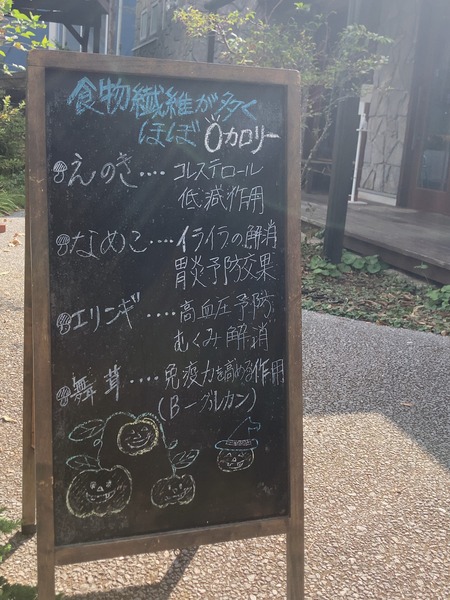 食物繊維が多く
ほぼ0カロリー
えのき････コレステロール
低減作用
なめこ････イライラの解消
胃炎予防効果
エリンギ････高血圧予防
むくみ解消
舞茸････免疫力を高める作用
(B-グルカン)